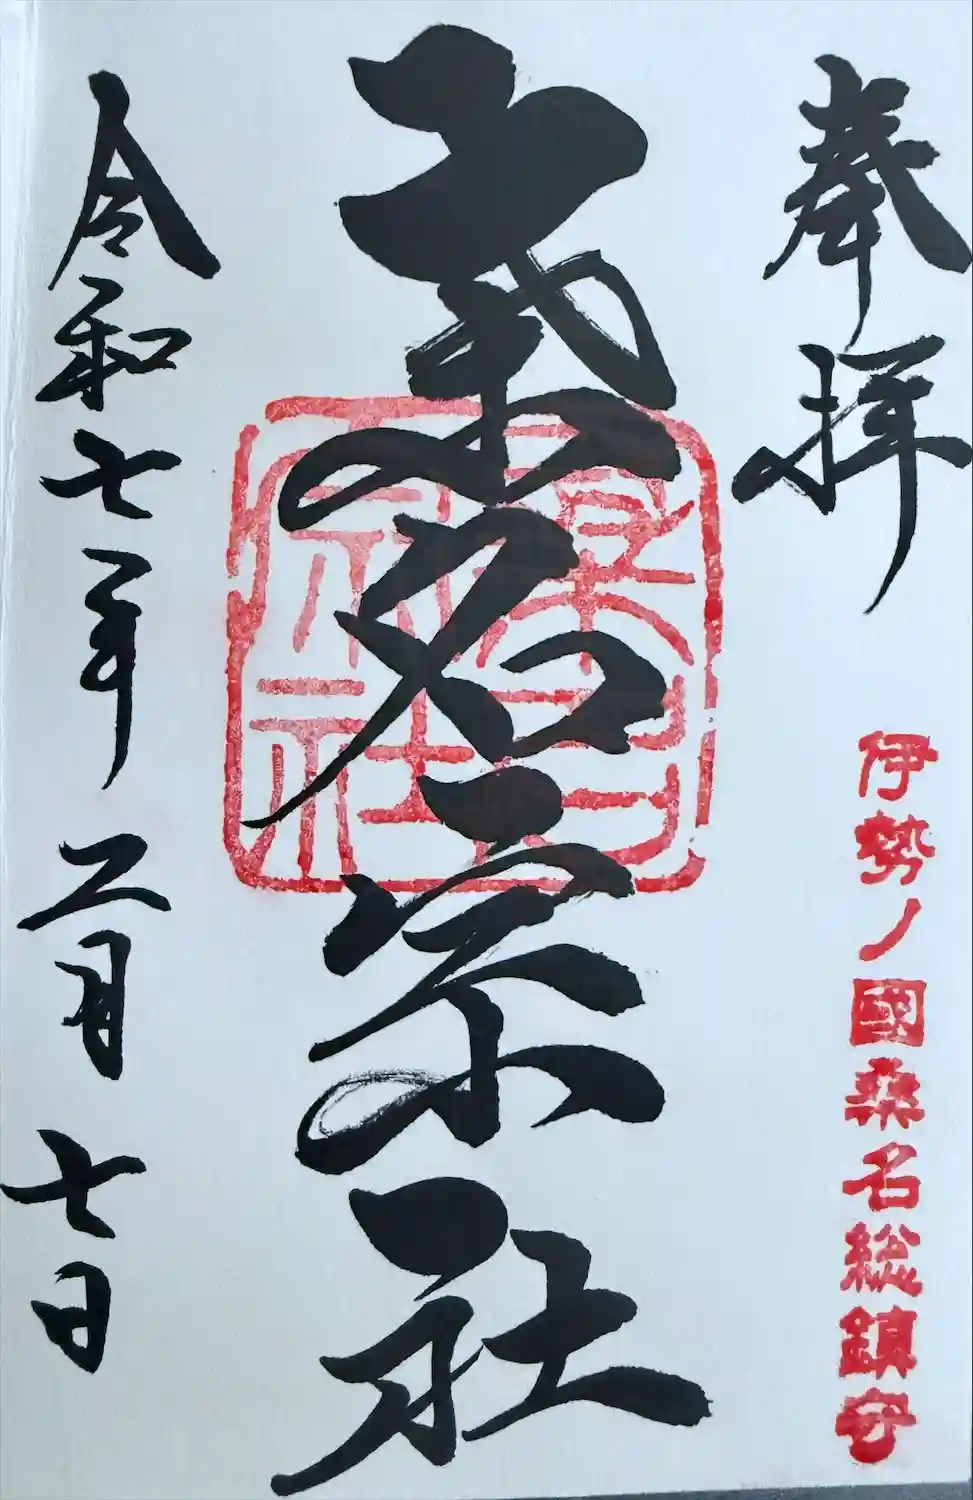 奉拝
伊勢ノ國桑名総鎮守
桑名宗社
桑名
宗社
令和七年二月七日